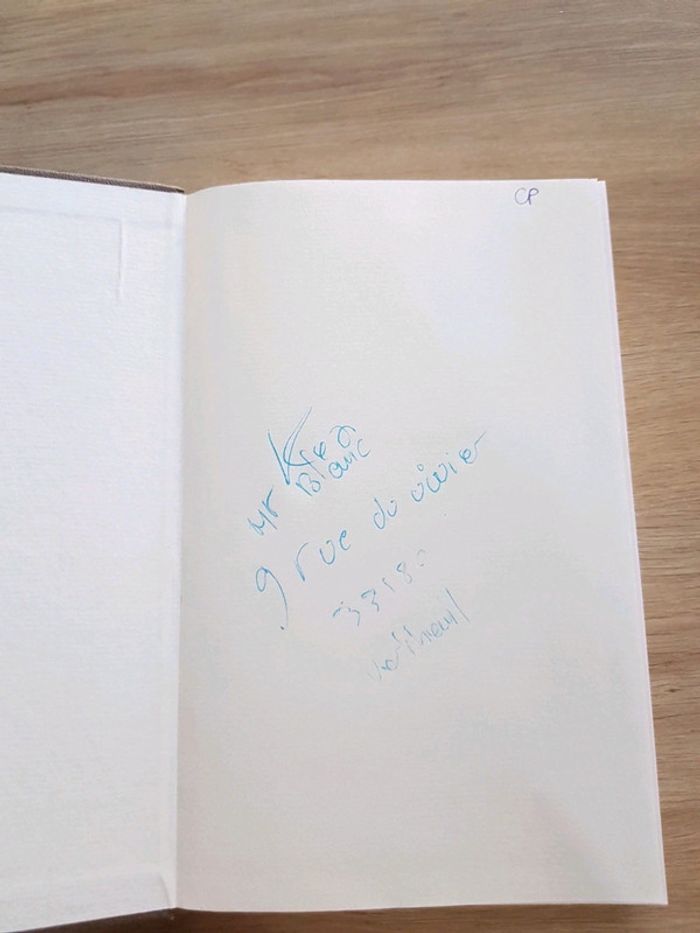 CP
Mr
Blanc
9 rue du vivier
33180